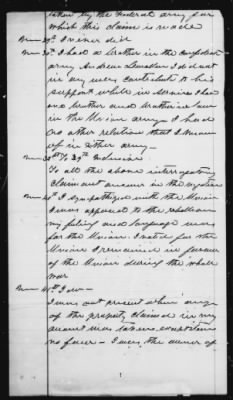 taken by the Federal army for
which this claim is made
29th I never did
30th I had a brother in the Confederate
army. Andrew I did not
in any way contribute to his
support while in service I had
one brother and brother in law
in the Union army. I had
no other relation that I know
of in either army—
31st To 39th Inclusive
To all the above interrogatory
claimant answers in the negative
40 I sympathized with the Union
I was opposed to the rebellion
my feeling and language was
for the Union. I voted for the
Union I remained in favour
of the Union during the whole
war
41st I do—
I was not present when any
of the property claimed in my
account was taken except
no fever— I was the owner of